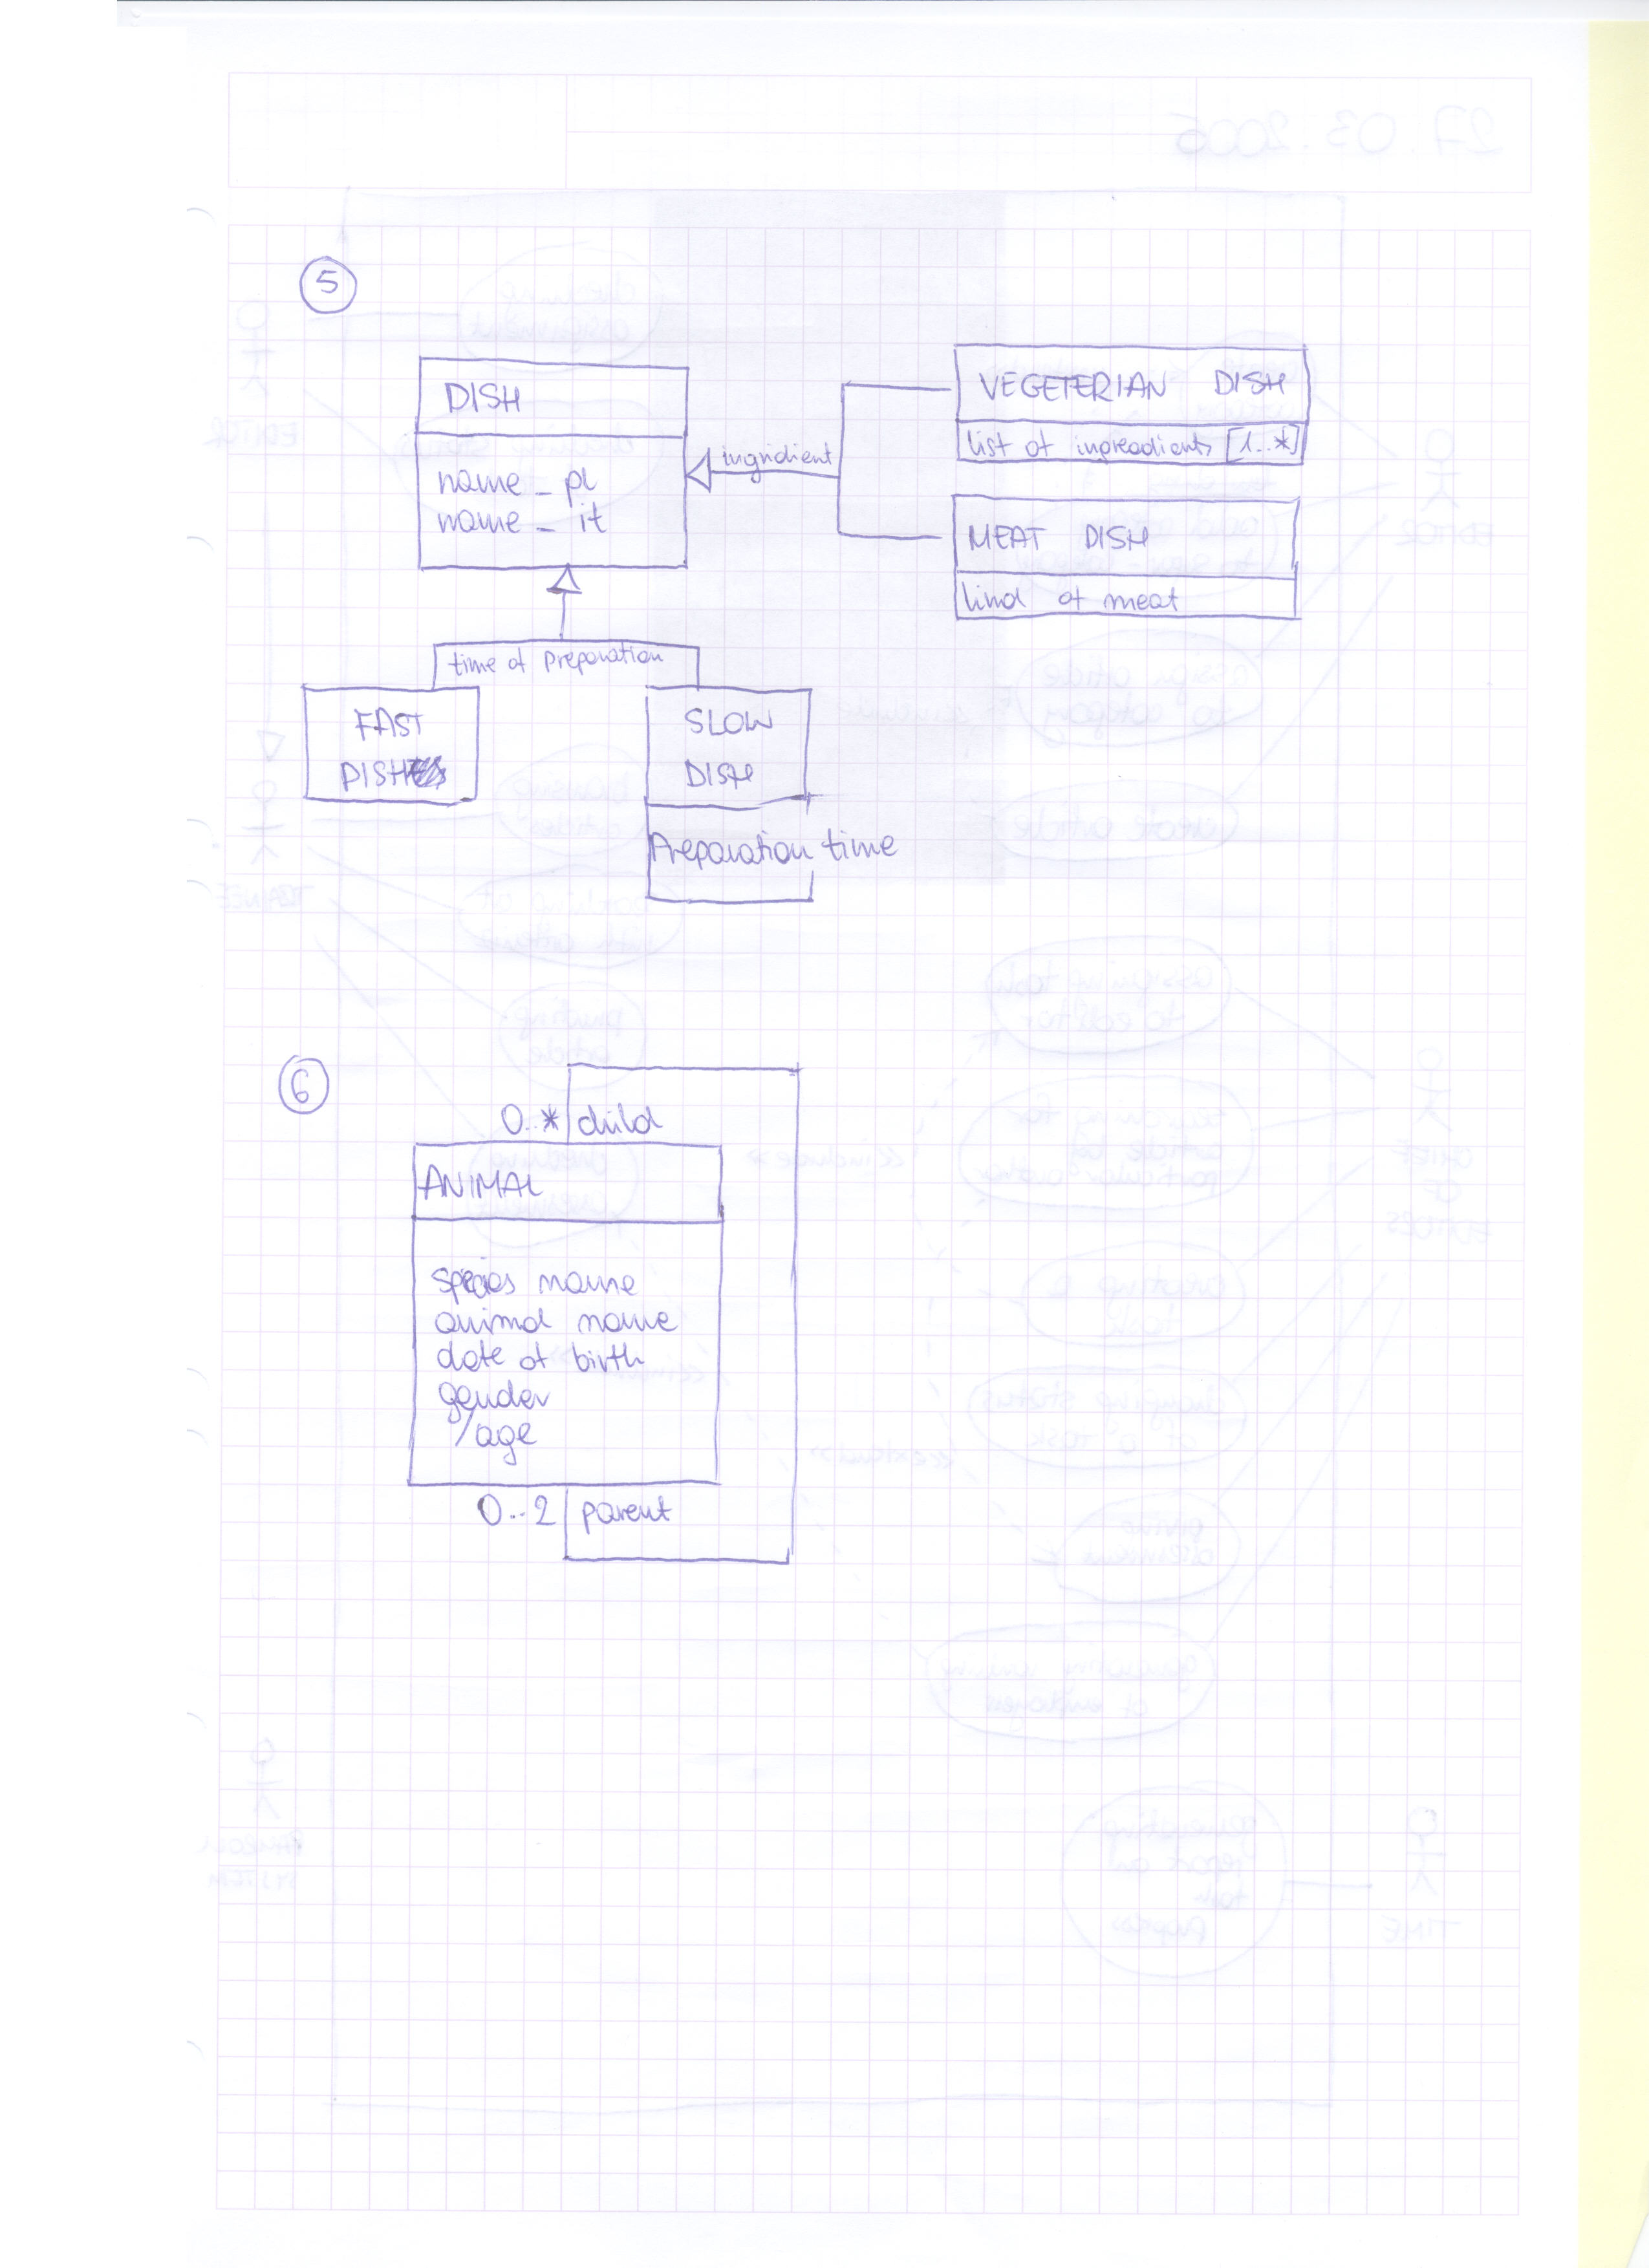 5
DISH
name_pl
name_it
ingridient
VEGETERIAN DISH
list of ingreadients [1..*]
MEAT DISH
kind of meat
time of preparation
FAST
DISH
SLOW
DISH
Preparation time
6
0..* child
ANIMAL
species name
animal name
date of birth
gender
/age
0..2 parent